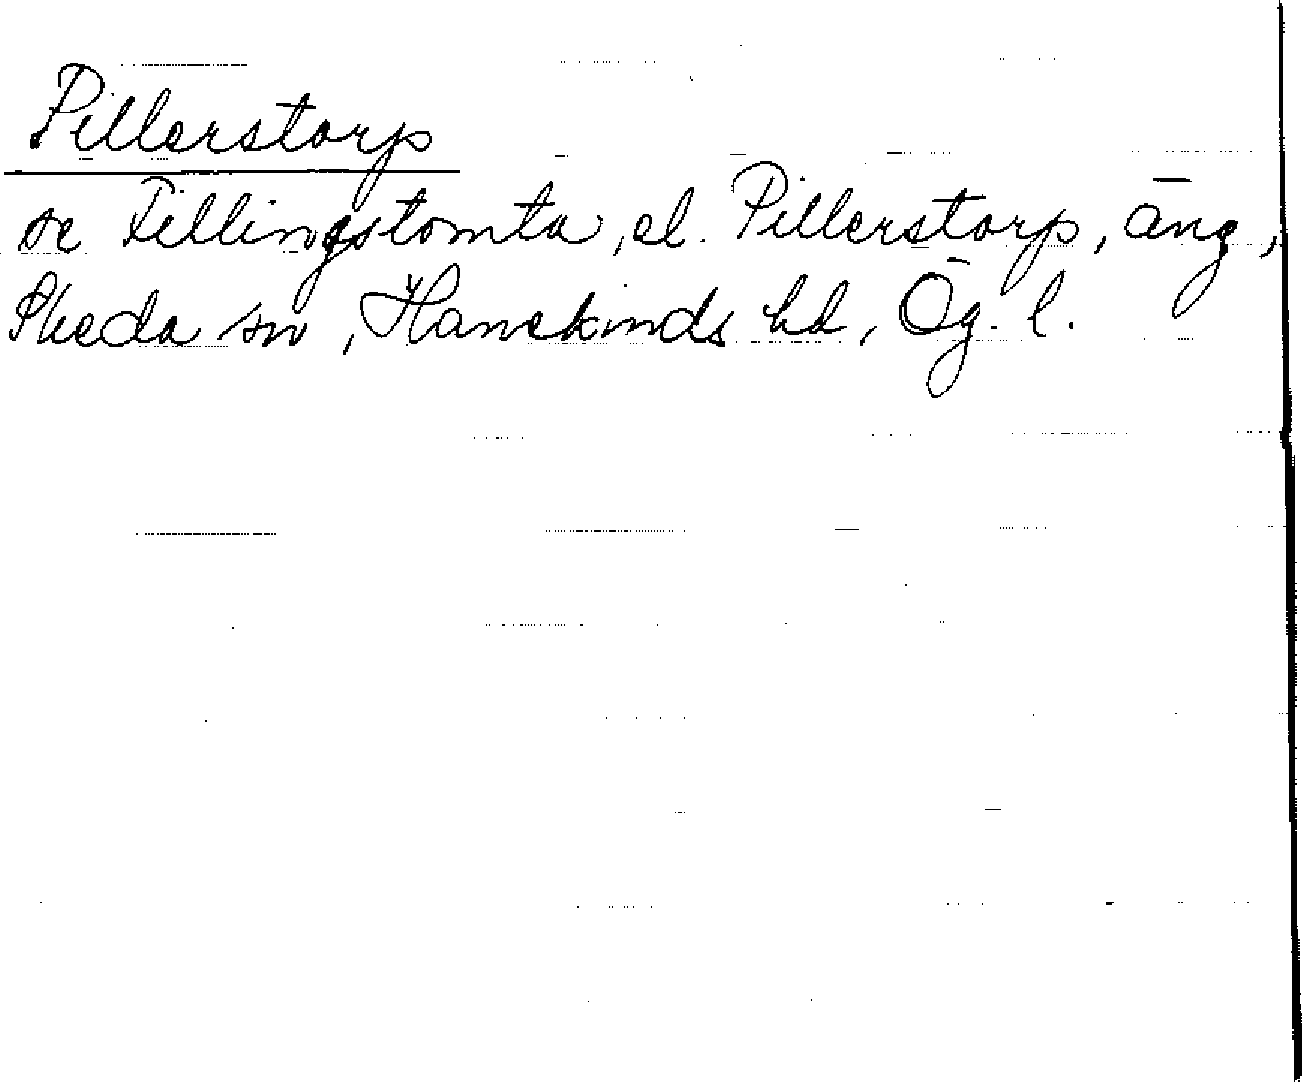 Pillerstorp
se Tillingstomta, el. Pillerstorp, äng,
Skeda sn, Hanekinds hd, Ög. l.